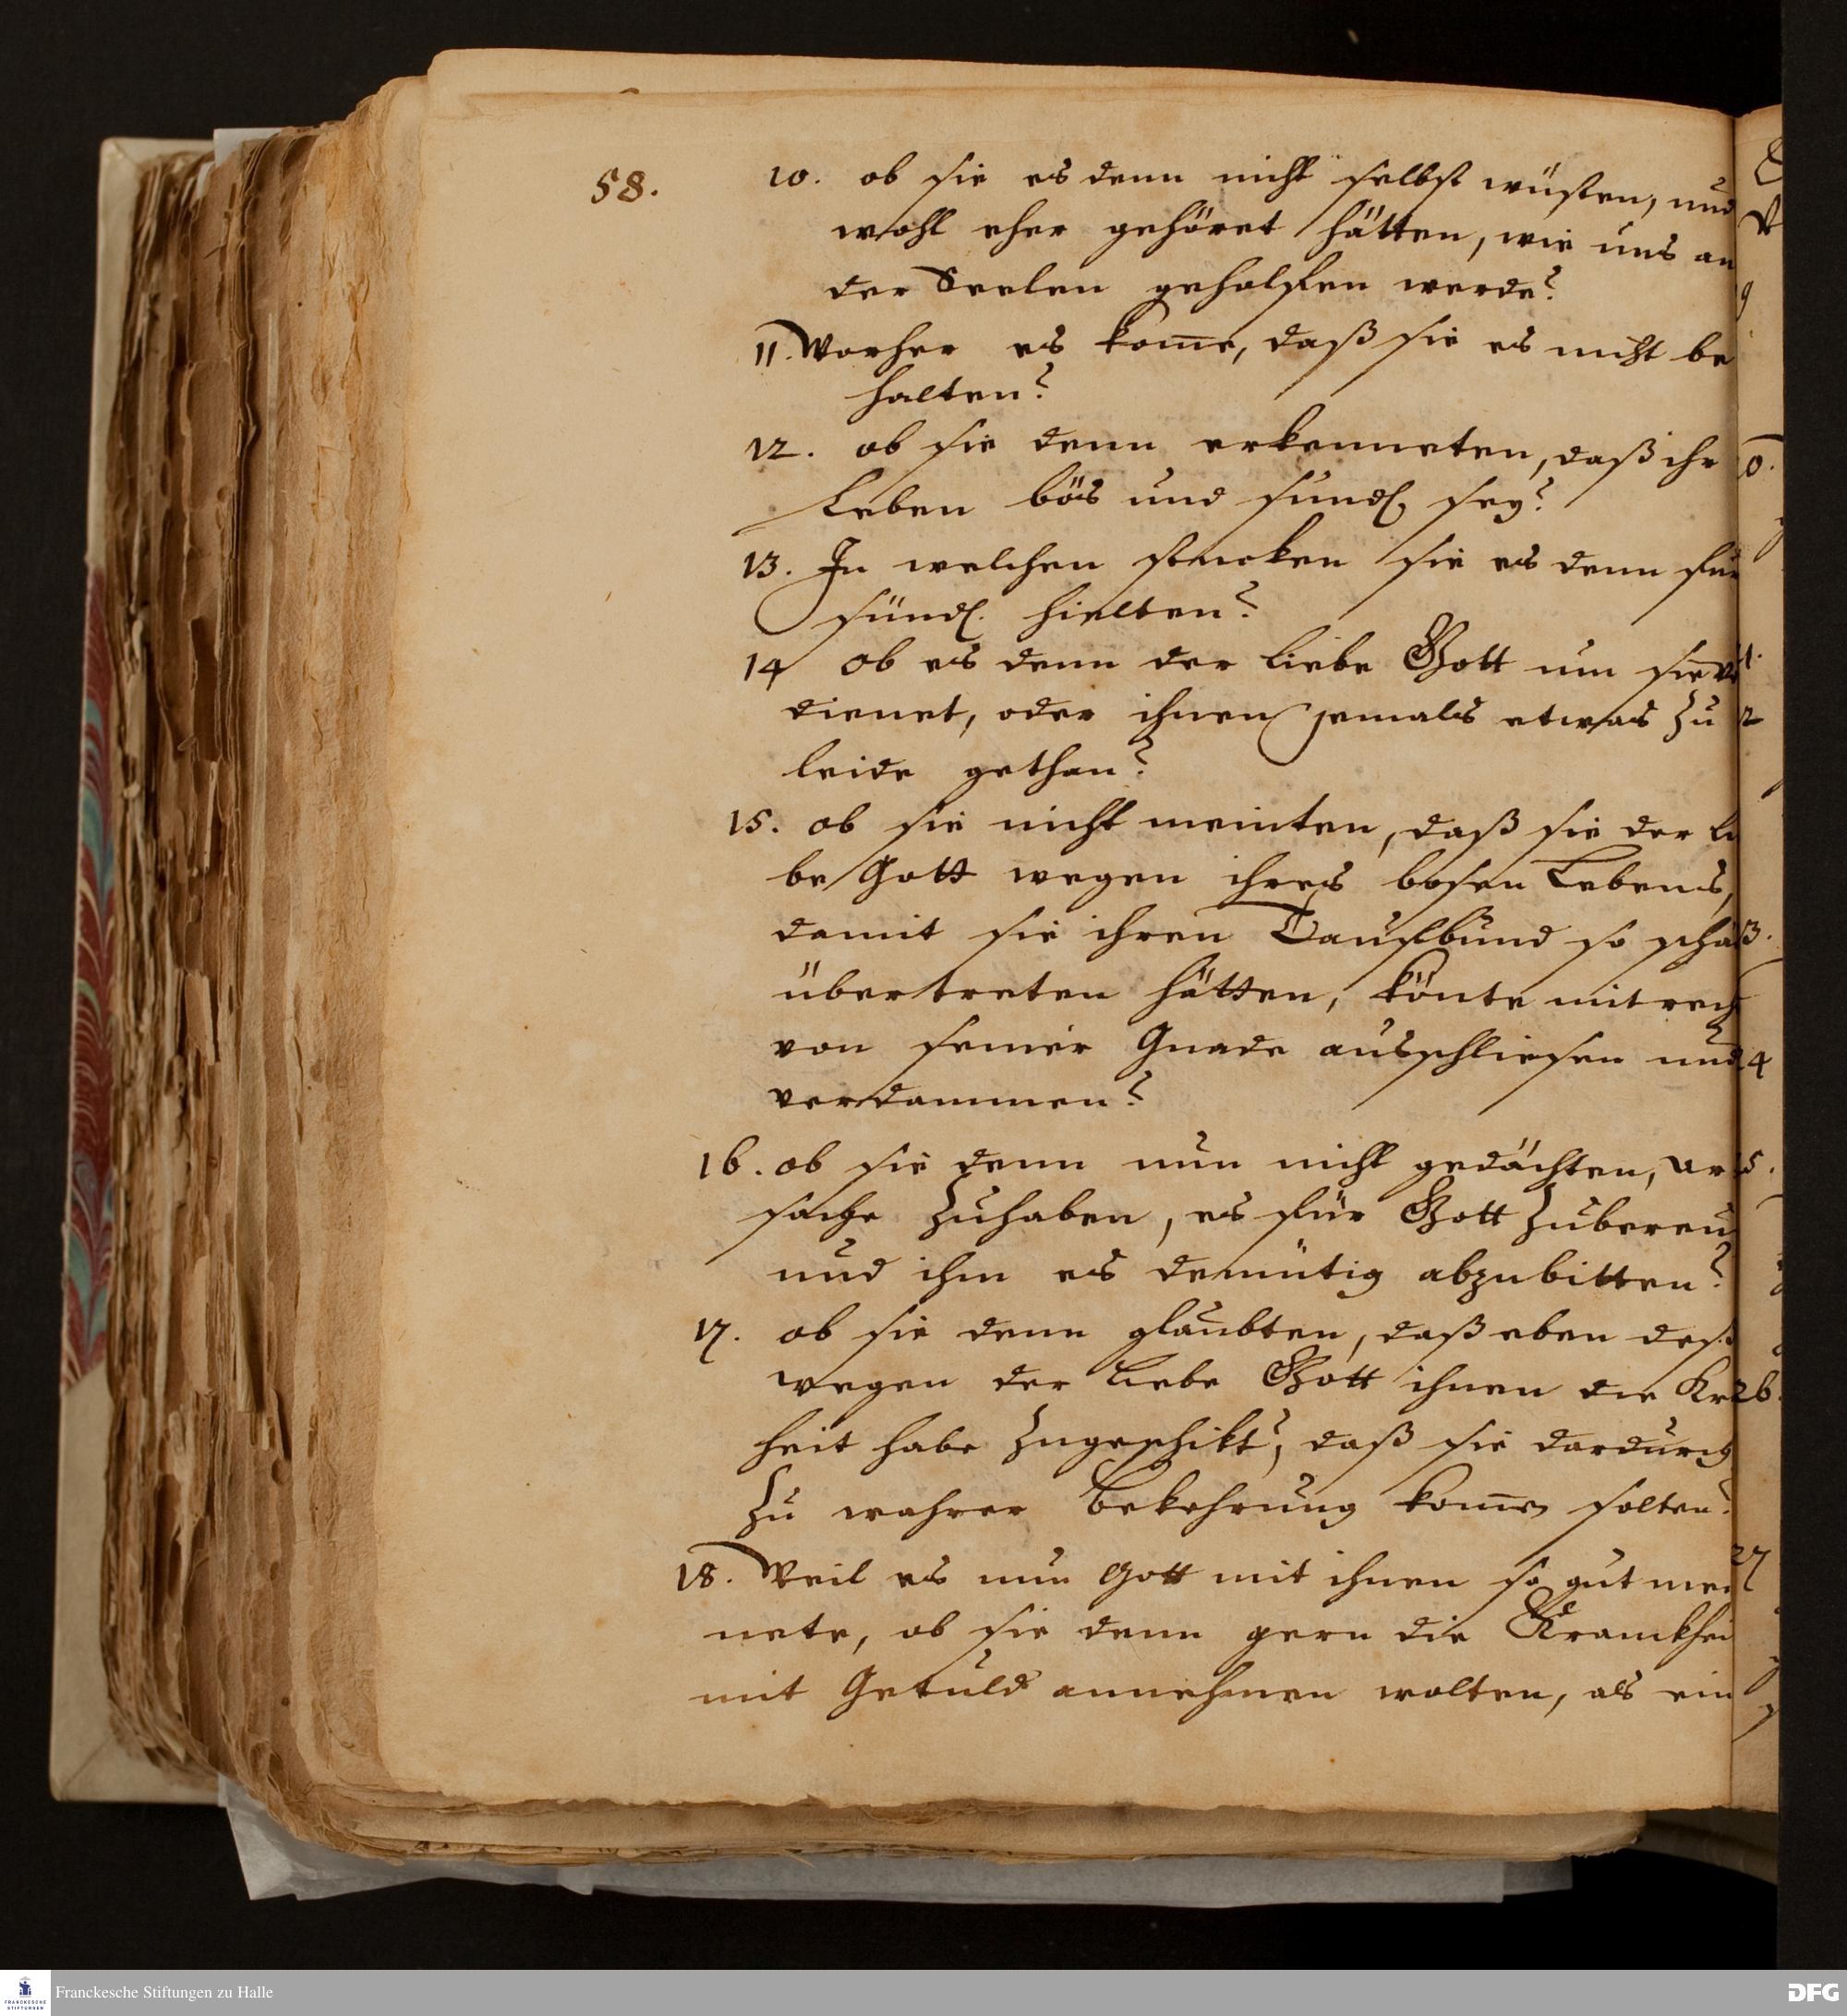 58.
10. ob sie es denn nicht selbst wüsten, und
wohl eher gehöret hätten, wie uns an
der Seelen geholfen werde?
11. Worher es kom̅e, daß sie es nicht be
halten?
12. ob sie denn erkenneten, daß ihr
Leben bös und sündl. sey?
13. In welchen stucken sie es denn für
sündl. hielten?
14 Ob es denn der liebe Gott um sie v
dienet, oder ihnen jemals etwas zu
leide gethan?
15. ob sie nicht meinten, daß sie der li
be Gott wegen ihres bosen Lebens,
damit sie ihren Taufbund so schä
übertreten hätten, könte mit rech
von seiner Gnade ausschliesen und
verdammen?
16. ob sie denn nun nicht gedächten, ur
sache zuhaben, es für Gott zubereu
und ihm es demütig abzubitten?
17. ob sie denn glaubten, daß eben des
wegen der liebe Gott ihnen die Kr
heit habe zugeschikt, daß sie dardurch
zu wahrer bekehrung kom̅en solten?
18. Weil es nun Gott mit ihnen so gut mei
nete, ob sie denn gern die Kranckhei
mit Getuld annehmen wolten, als ein
Franckesche Stiftungen zu Halle
DFG